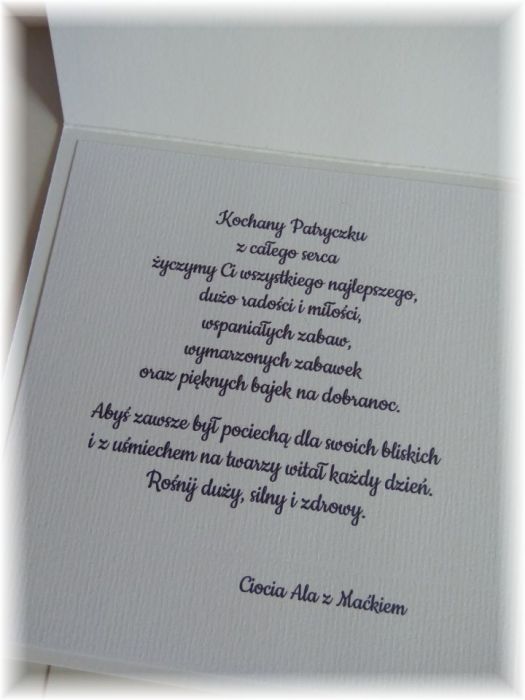 Kochany Patryczku
z całego serca
życzymy Ci wszystkiego najlepszego,
dużo radości i miłości,
wspaniałych zabaw,
wymarzonych zabawek
oraz pięknych bajek na dobranoc.
Abyś zawsze był pociechą dla swoich bliskich
i z uśmiechem na twarzy witał każdy dzień.
Rośnij duży, silny i zdrowy.
Ciocia Ala z Maćkiem